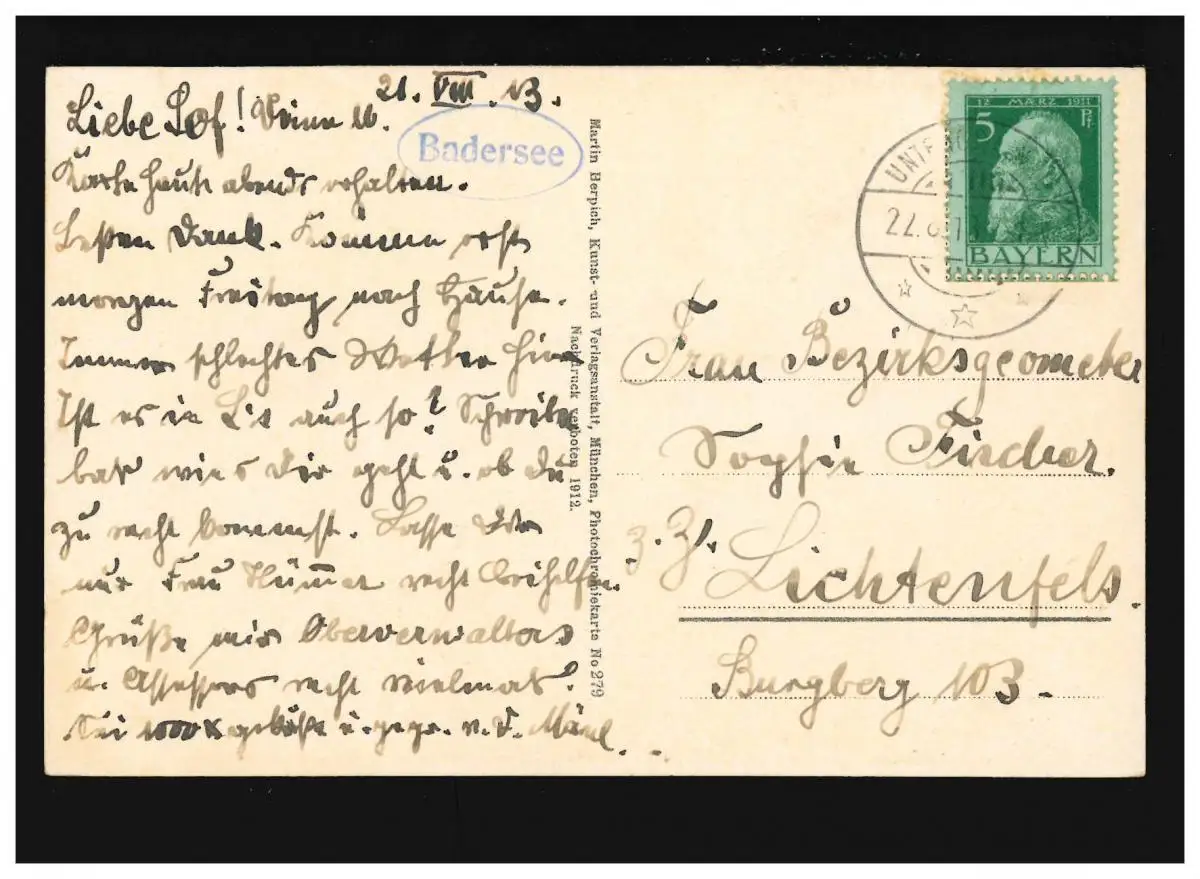 21. VIII. 13.
Liebe Sof! Deine lb.
Karte heute abends erhalten.
Besten Dank. Komme erst
morgen Freitag nach Hause.
Immer schlechtes Wetter hier
Ist es in L. auch so? Schreibe
wies Dir geht u. ob du
zu recht kommst. Lasse Dir
nur Frau recht
Grüße mir Oberverwalters
u. Assessors recht vielmal.
Sei 1000 x geküßt u. gegr. v. D.
Badersee
Martin Herpich, Kunst- und Verlagsanstalt, München, Photochromiekarte No 279
Nachdruck verboten 1912.
12 MÄRZ 1911
5 Pf
BAYERN
22.
Frau Bezirksgeometer
Sophie Fischer.
z. Zt. Lichtenfels.
Burgberg 103.